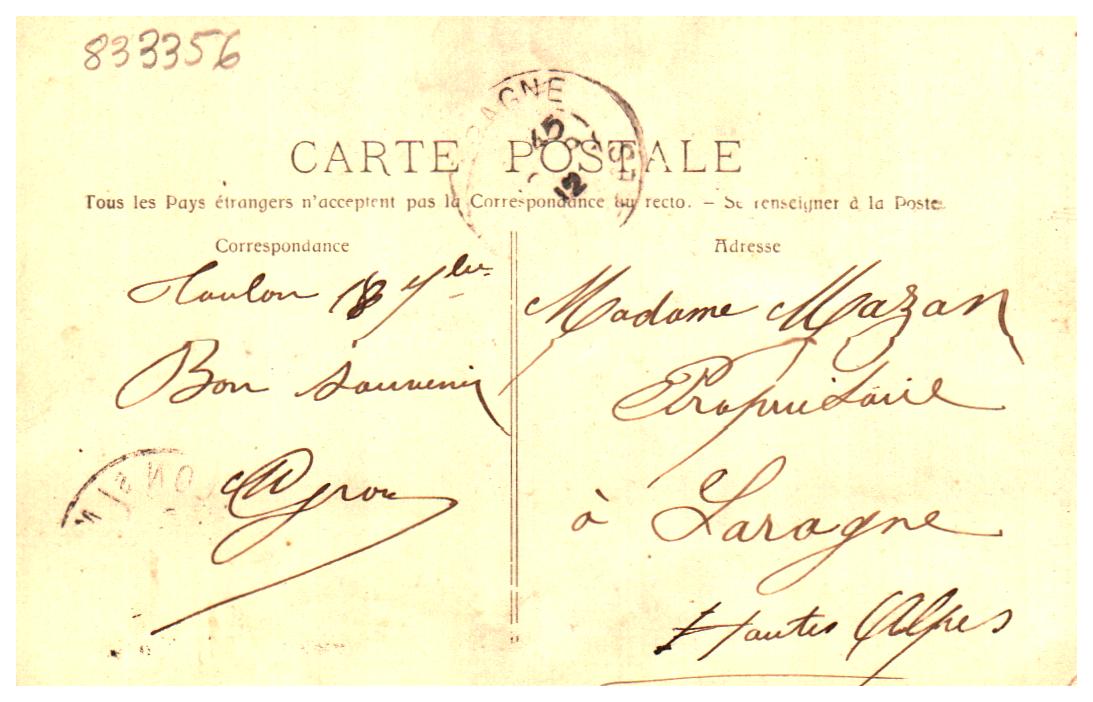 833356
RAGNE
45
12
CARTE POSTALE
Tous les Pays étrangers n'acceptent pas la Correspondance au recto. — Se renseigner à la Poste.
Correspondance
Adresse
Toulon 18 7bre
Bon souvenir
Madame Mazan
Propriétaire
à Laragne
Hautes Alpes